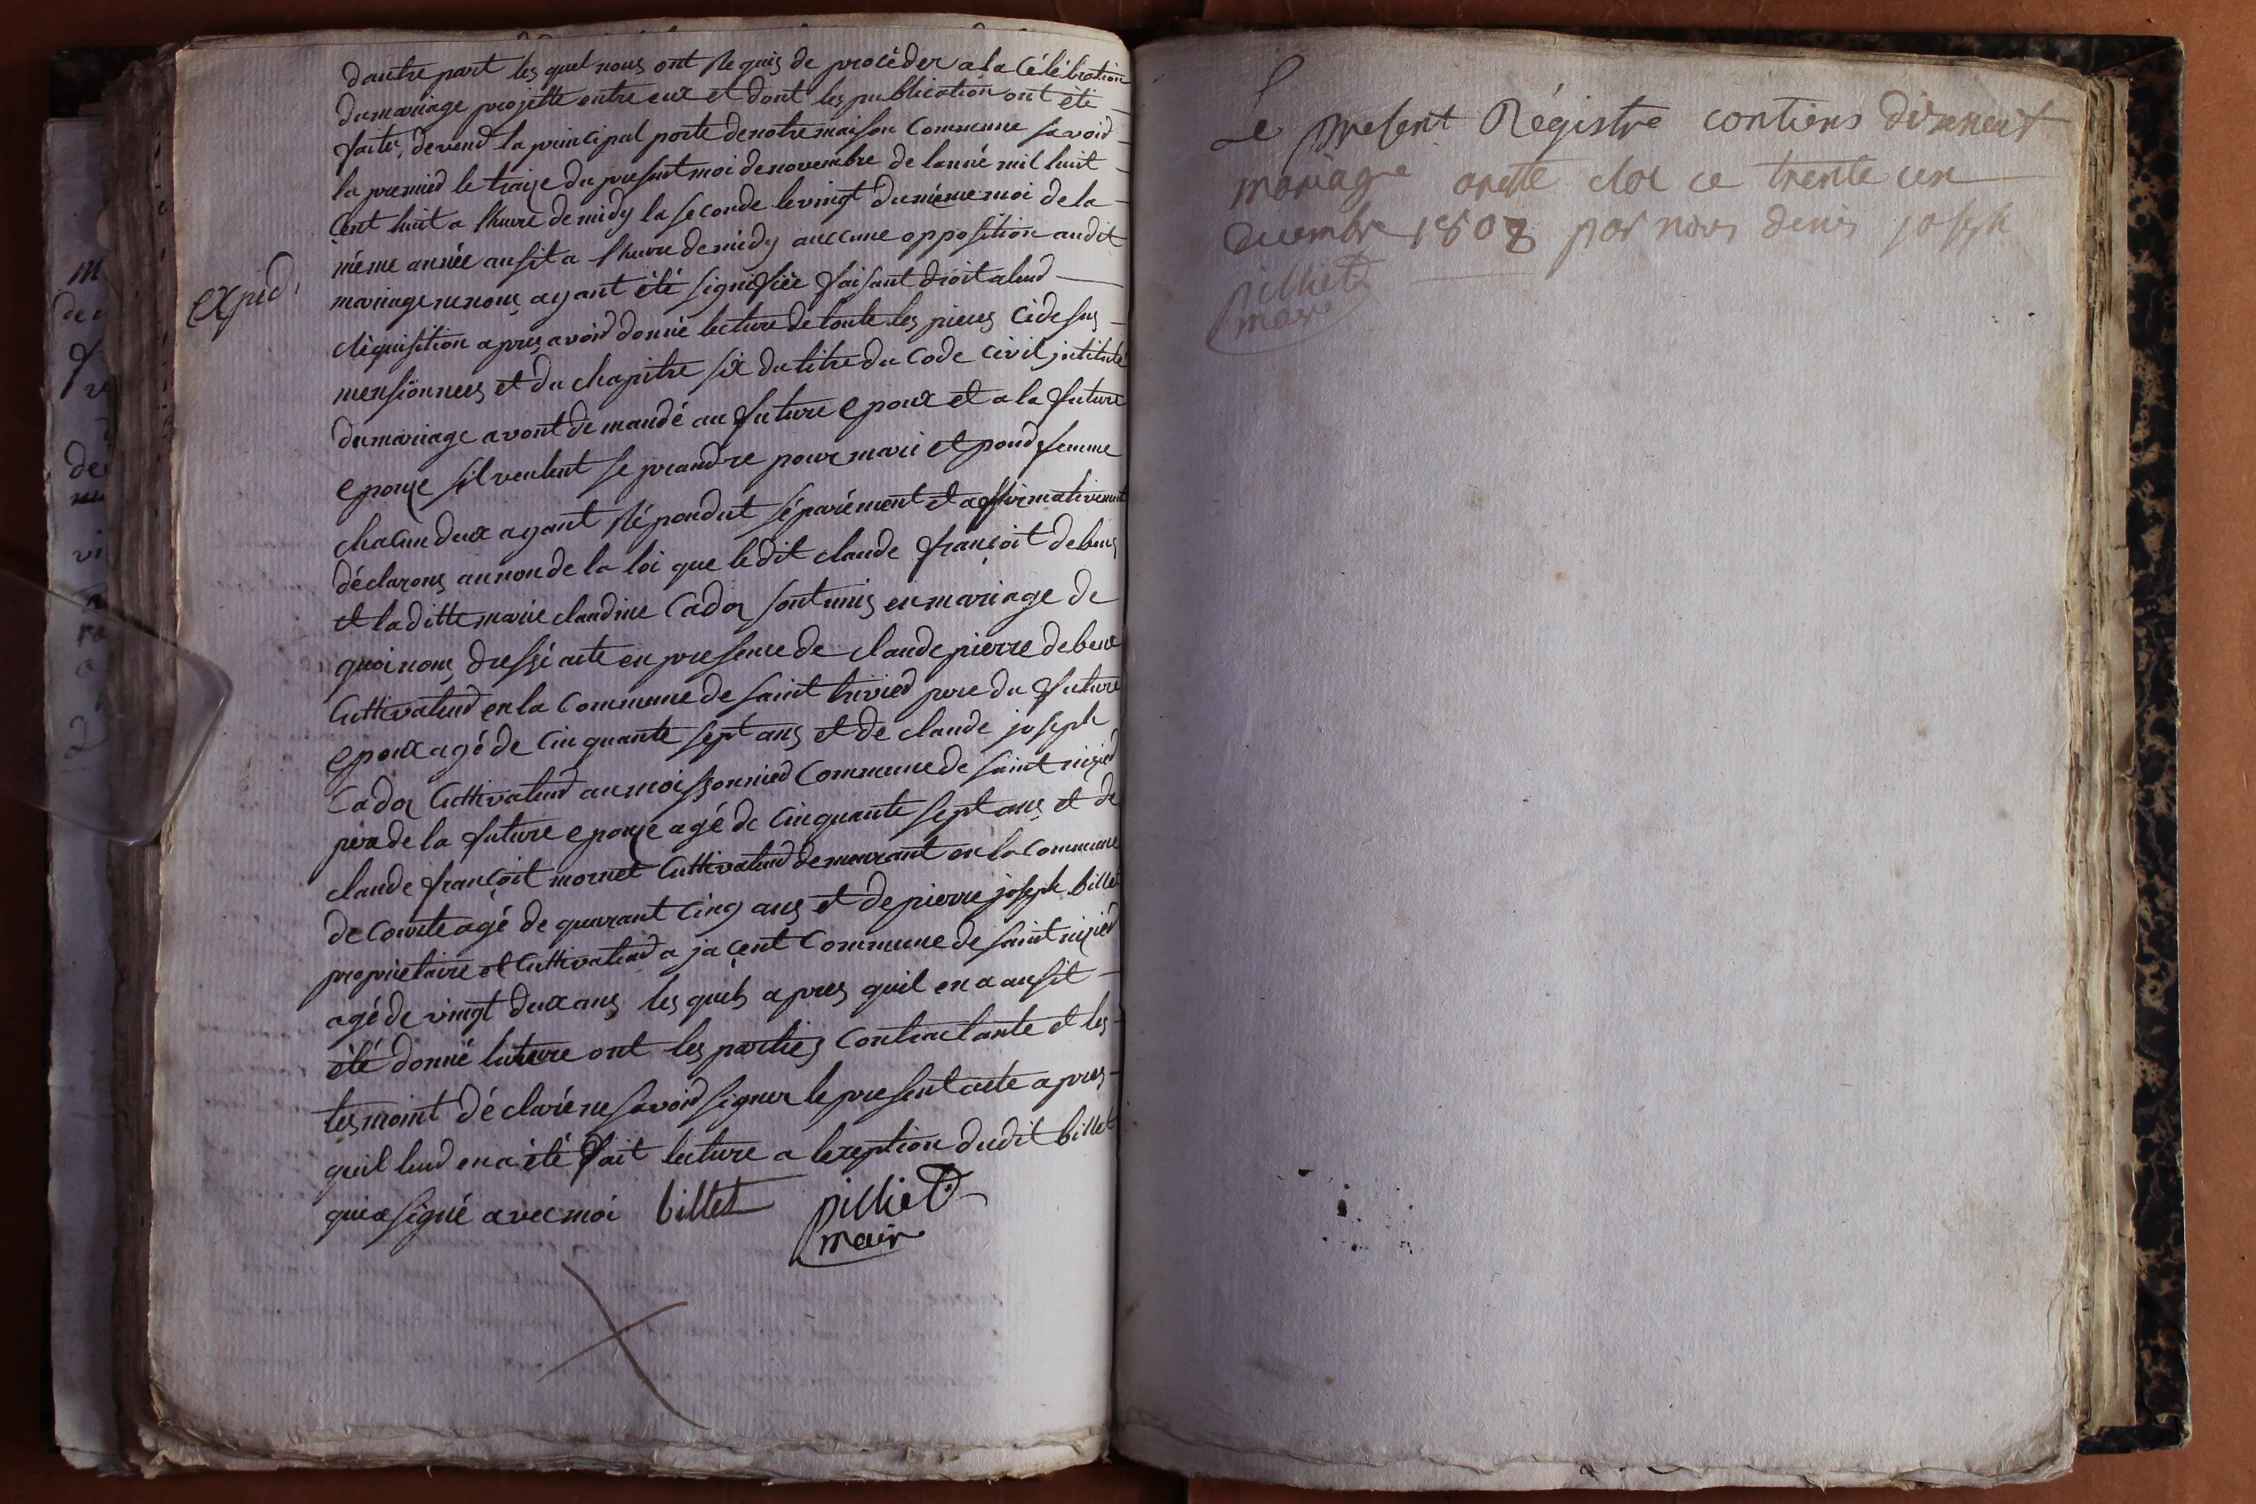 dautre part les quel nous ont Requis de procéder a la Célébration
du mariage projetté entre eux et dont les publication ont été
faite, devend la principal porte de notre maison Commune savoir
la premier le traize du present moi de novembre de lanné mil huit
Cent huit a lheure de midy la seconde le vingt du même moi de la
même année ausit a lheure de midy auccune opposition audit
mariage ne nous ayant été signifiée faisant droit a leur
expéd.
Réquisition apres avoir donné lecture de toute les pieces Cidesus
mensionnees et du chapitre six du titre du Code Civil intitulé
du mariage avont demandé au future epoux et a la future
epouze sil veulent se prandre pour mari et pour femme
chacun deux ayant Répondut séparément et affirmativement
déclarons au non de la loi que ledit claude françoit debeux
et la ditte marie claudine Cadoz sont unis en mariage de
quoi nous dressé acte en presence de claude pierre debeux
Cultivateur en la Commune de saint trivier pere du future
epoux agé de Cinquante sept ans et de claude joseph
Cadoz Cultivateur au moissonnier Commune de saint nizier
pere de la future epouze agé de Cinquante sept ans et de
claude françoit mornet Cultivateur demeurant en la Commune
de Courte agé de quarant Cinq ans et de pierre joseph billet
proprietaire et Cultivateur a jacent Commune de saint nizier
agé de vingt deux ans les quels apres quil en a ausit
été donné lecture ont les parties Contractante et les
tesmoint déclaré ne savoir signer le present acte apres
quil leur en a été fait lecture a lexeption dudit billet
qui a signé avec moi billet pilliet
mair
Le present Régistre contiens
mariage aresté clos ce trente un
decembre 1808 par nous denis joseph
pilliet
mair